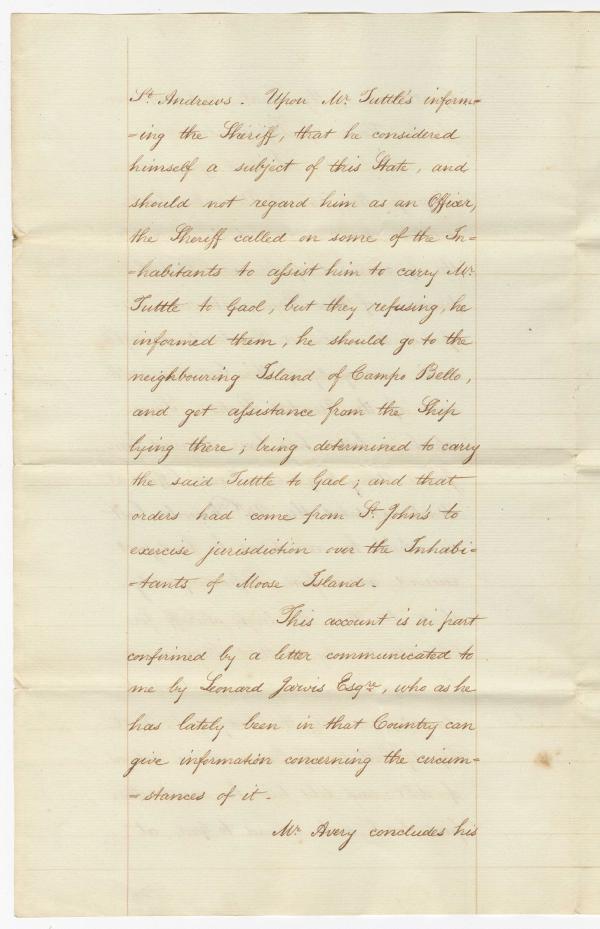 St. Andrews. Upon Mr. Tuttle's inform=
=ing the Sheriff, that he considered
himself a subject of this State, and
should not regard him as an Officer,
the Sheriff called on some of the In=
=habitants to assist him to carry Mr.
Tuttle to Gaol, but they refusing, he
informed them, he should go to the
neighbouring Island of Campo Bello,
and get assistance from the Ship
lying there; being determined to carry
the said Tuttle to Gaol; and that
orders had come from St. John's to
exercise jurisdiction over the Inhabi=
=tants of Moose Island.
This account is in part
confirmed by a letter communicated to
me by Leonard Jarvis Esqre., who as he
has lately been in that Country can
give information concerning the circum=
=stances of it.
Mr. Avery concludes his